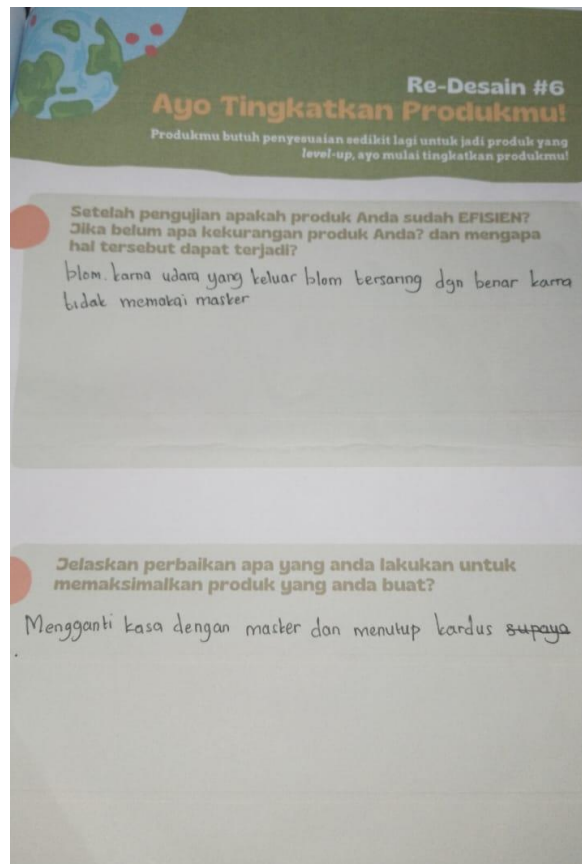 Re-Desain #6
Ayo Tingkatkan Produkmu!
Produkmu butuh penyesuaian sedikit lagi untuk jadi produk yang
level-up, ayo mulai tingkatkan produkmu!
Setelah pengujian apakah produk Anda sudah EFISIEN?
Jika belum apa kekurangan produk Anda? dan mengapa
hal tersebut dapat terjadi?
blom. karna udara yang keluar blom tersaring dgn benar karna
tidak memakai masker
Jelaskan perbaikan apa yang anda lakukan untuk
memaksimalkan produk yang anda buat?
Mengganti kasa dengan masker dan menutup kardus supaya